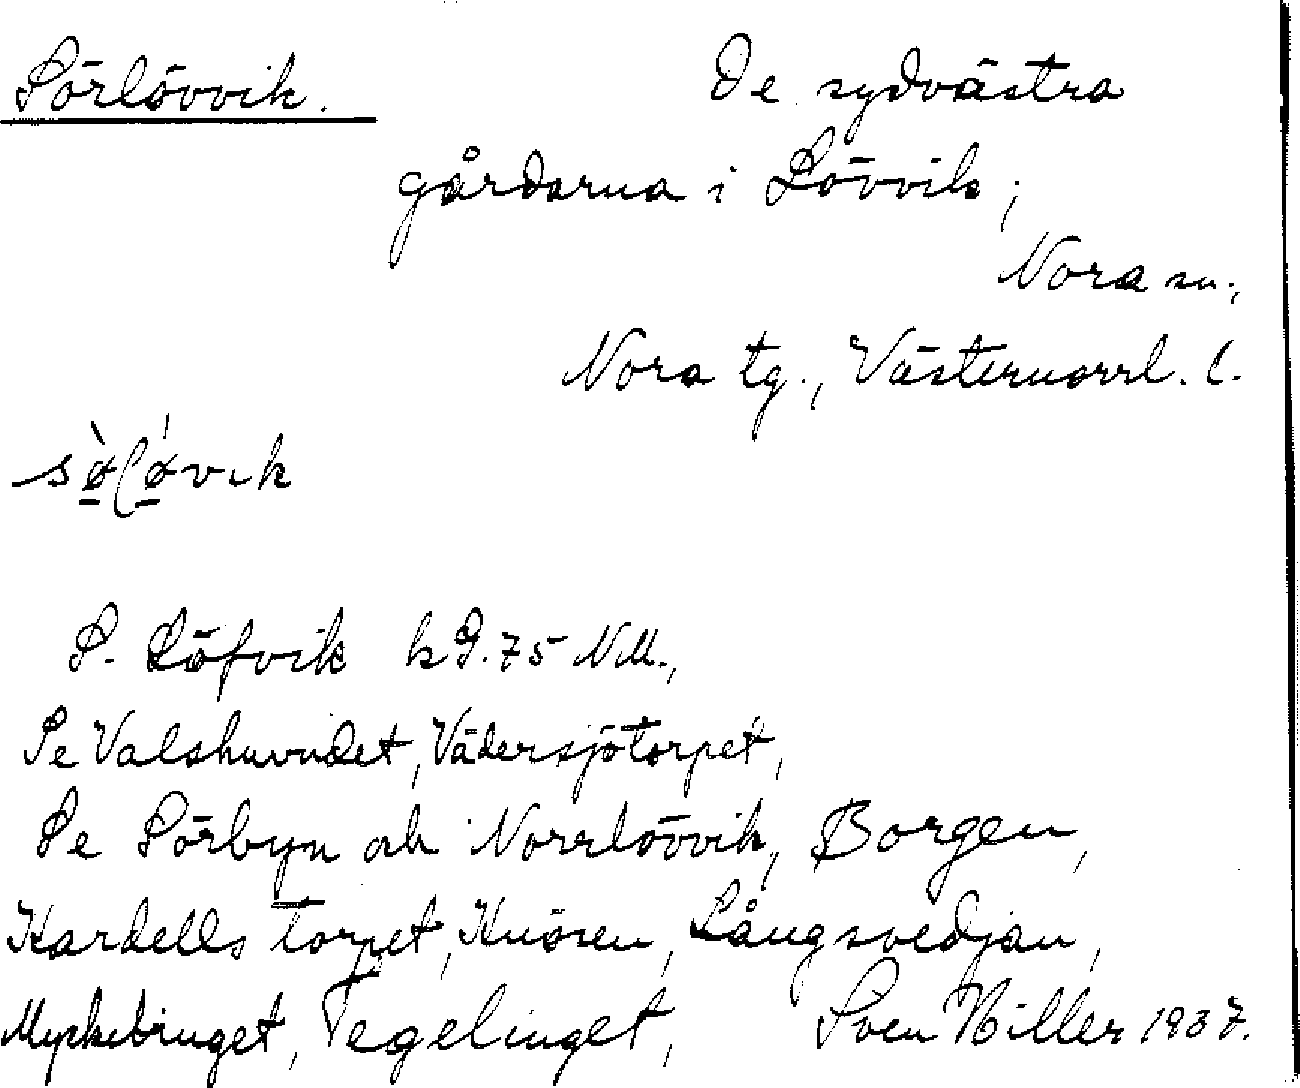 Sörlövvik. De sydvästra
gårdarna i Lövvik;
Nora sn.,
Nora tg., Västernorrl. l.
sø̀lǿvik
S. Löfvik 75 NM.,
Se Valshuvudet, Vädersjötorpet,
Se Sörbyn och Norrlövvik, Borgen,
Kardells torpet, Knösen, Långsvedjan,
Myckebinget, Tegelinget, Sven Hiller 1937.